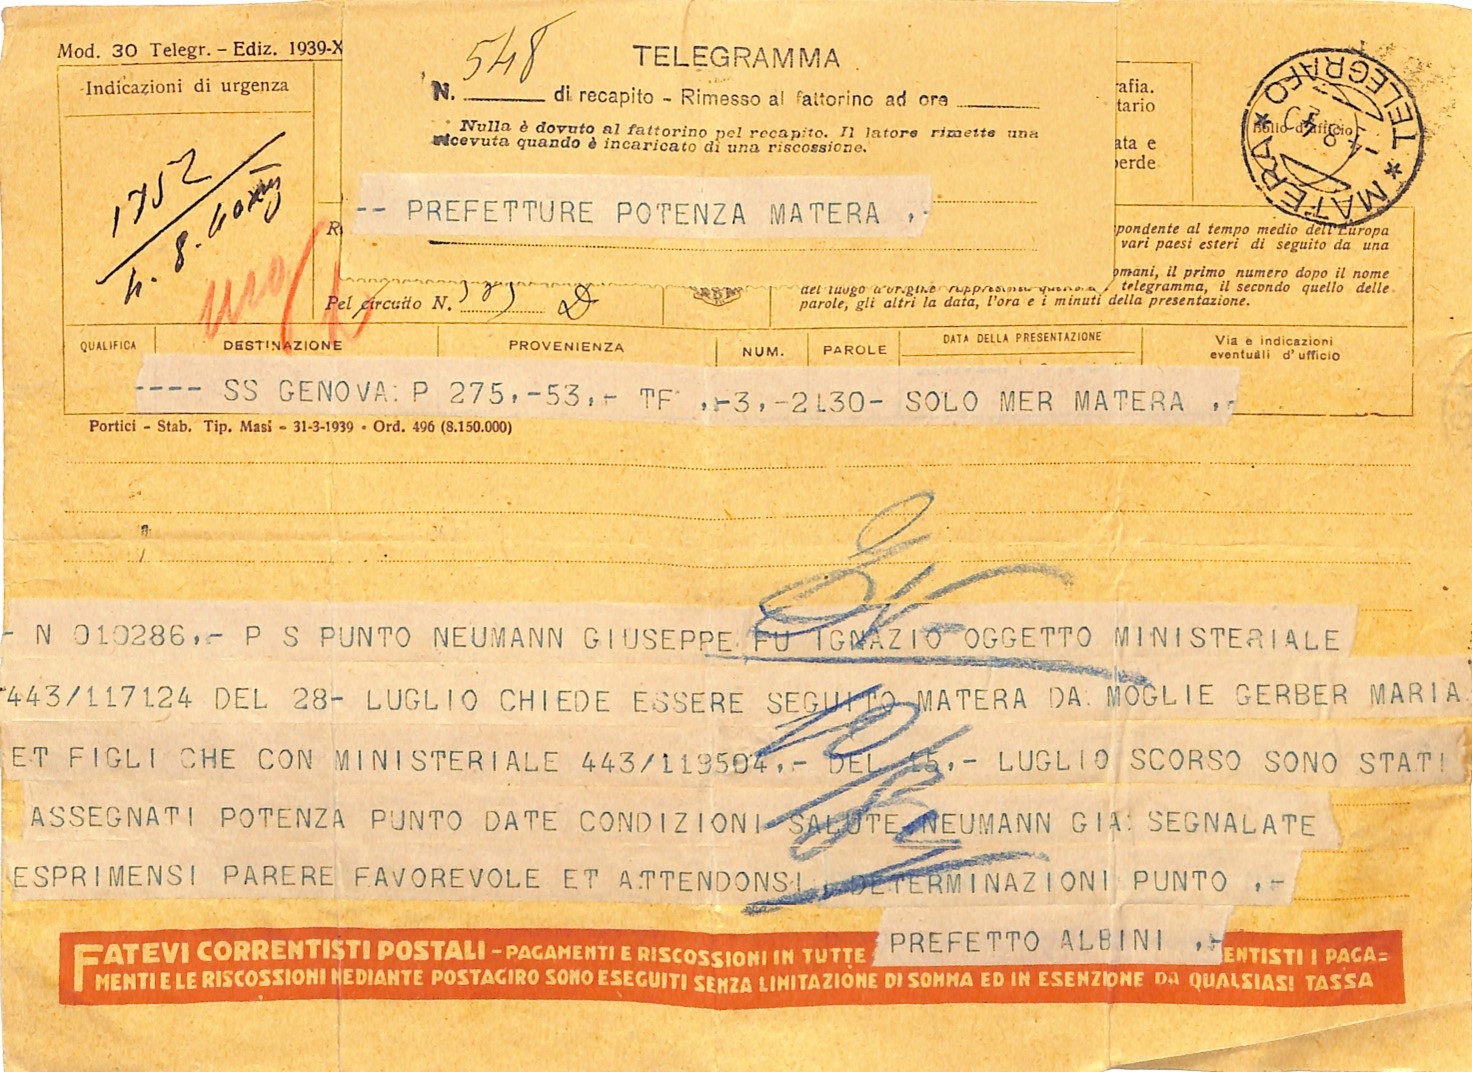 Mod. 30 Telegr. - Ediz. 1939-X
Indicazioni di urgenza
1752
4. 8. 40 XVIII
548
TELEGRAMMA
N. di recapito - Rimesso al fattorino ad ore
Nulla è dovuto al fattorino pel recapito. Il latore rimette una
ricevuta quando è incaricato di una riscossione.
afia.
tario
ata e
perde
Bollo d'ufficio
* MATERA * TELEGRAFO
-- PREFETTURE POTENZA MATERA ,-
R
pondente al tempo medio dell'Europa
vari paesi esteri di seguito da una
omani, il primo numero dopo il nome
del luogo d'origine rappresenta quello telegramma, il secondo quello delle
parole, gli altri la data, l'ora e i minuti della presentazione.
Pel circuito N.
QUALIFICA DESTINAZIONE PROVENIENZA NUM. PAROLE DATA DELLA PRESENTAZIONE Via e indicazioni
eventuali d'ufficio
---- SS GENOVA: P 275,-53,- TF ,-3,-2130- SOLO MER MATERA ,-
Portici - Stab. Tip. Masi - 31-3-1939 - Ord. 496 (8.150.000)
- N 010286,- P S PUNTO NEUMANN GIUSEPPE FU IGNAZIO OGGETTO MINISTERIALE
443/117124 DEL 28- LUGLIO CHIEDE ESSERE SEGUITO MATERA DA MOGLIE GERBER MARIA
ET FIGLI CHE CON MINISTERIALE 443/119504,- DEL 15,- LUGLIO SCORSO SONO STATI
ASSEGNATI POTENZA PUNTO DATE CONDIZIONI SALUTE NEUMANN GIA SEGNALATE
ESPRIMENSI PARERE FAVOREVOLE ET ATTENDONSI DETERMINAZIONI PUNTO ,-
PREFETTO ALBINI ,-
FATEVI CORRENTISTI POSTALI - PAGAMENTI E RISCOSSIONI IN TUTTE ENTISTI I PAGA=
MENTI E LE RISCOSSIONI MEDIANTE POSTAGIRO SONO ESEGUITI SENZA LIMITAZIONE DI SOMMA ED IN ESENZIONE DA QUALSIASI TASSA